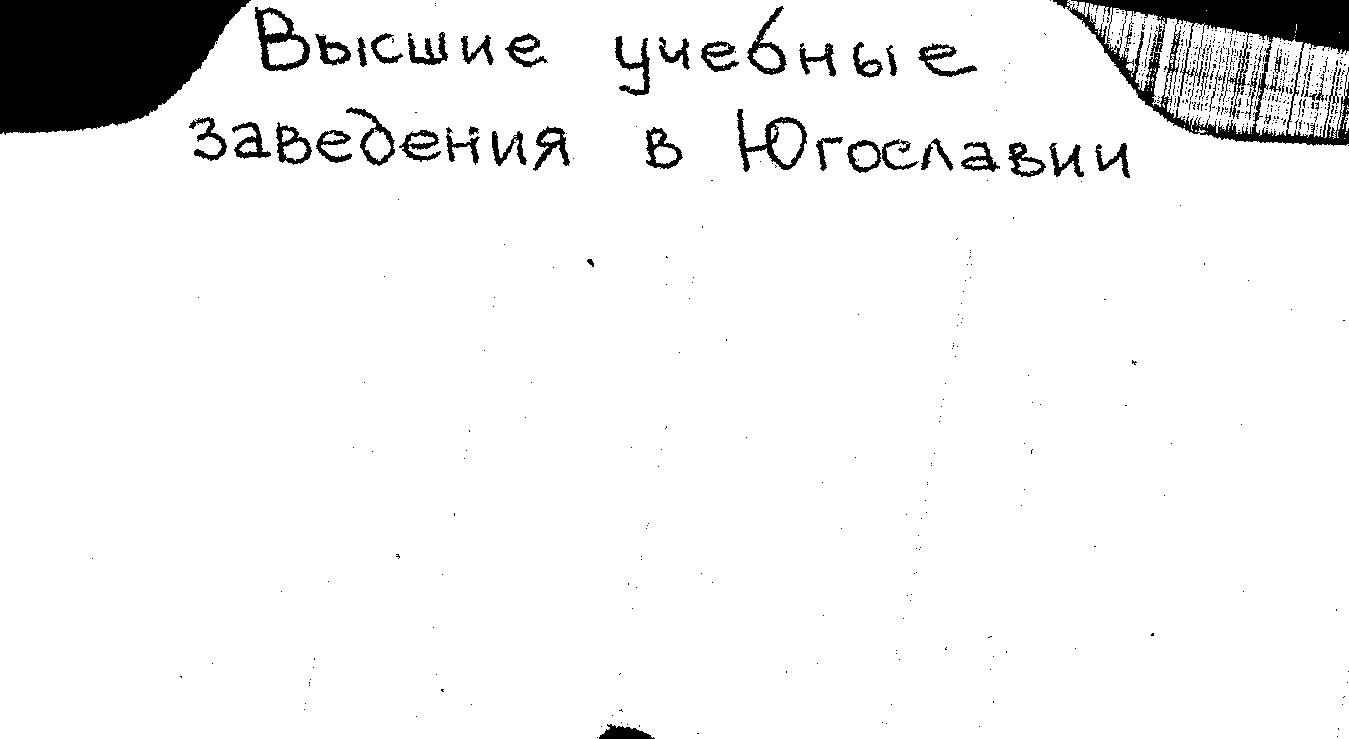 Высшие учебные
заведения в Югославии